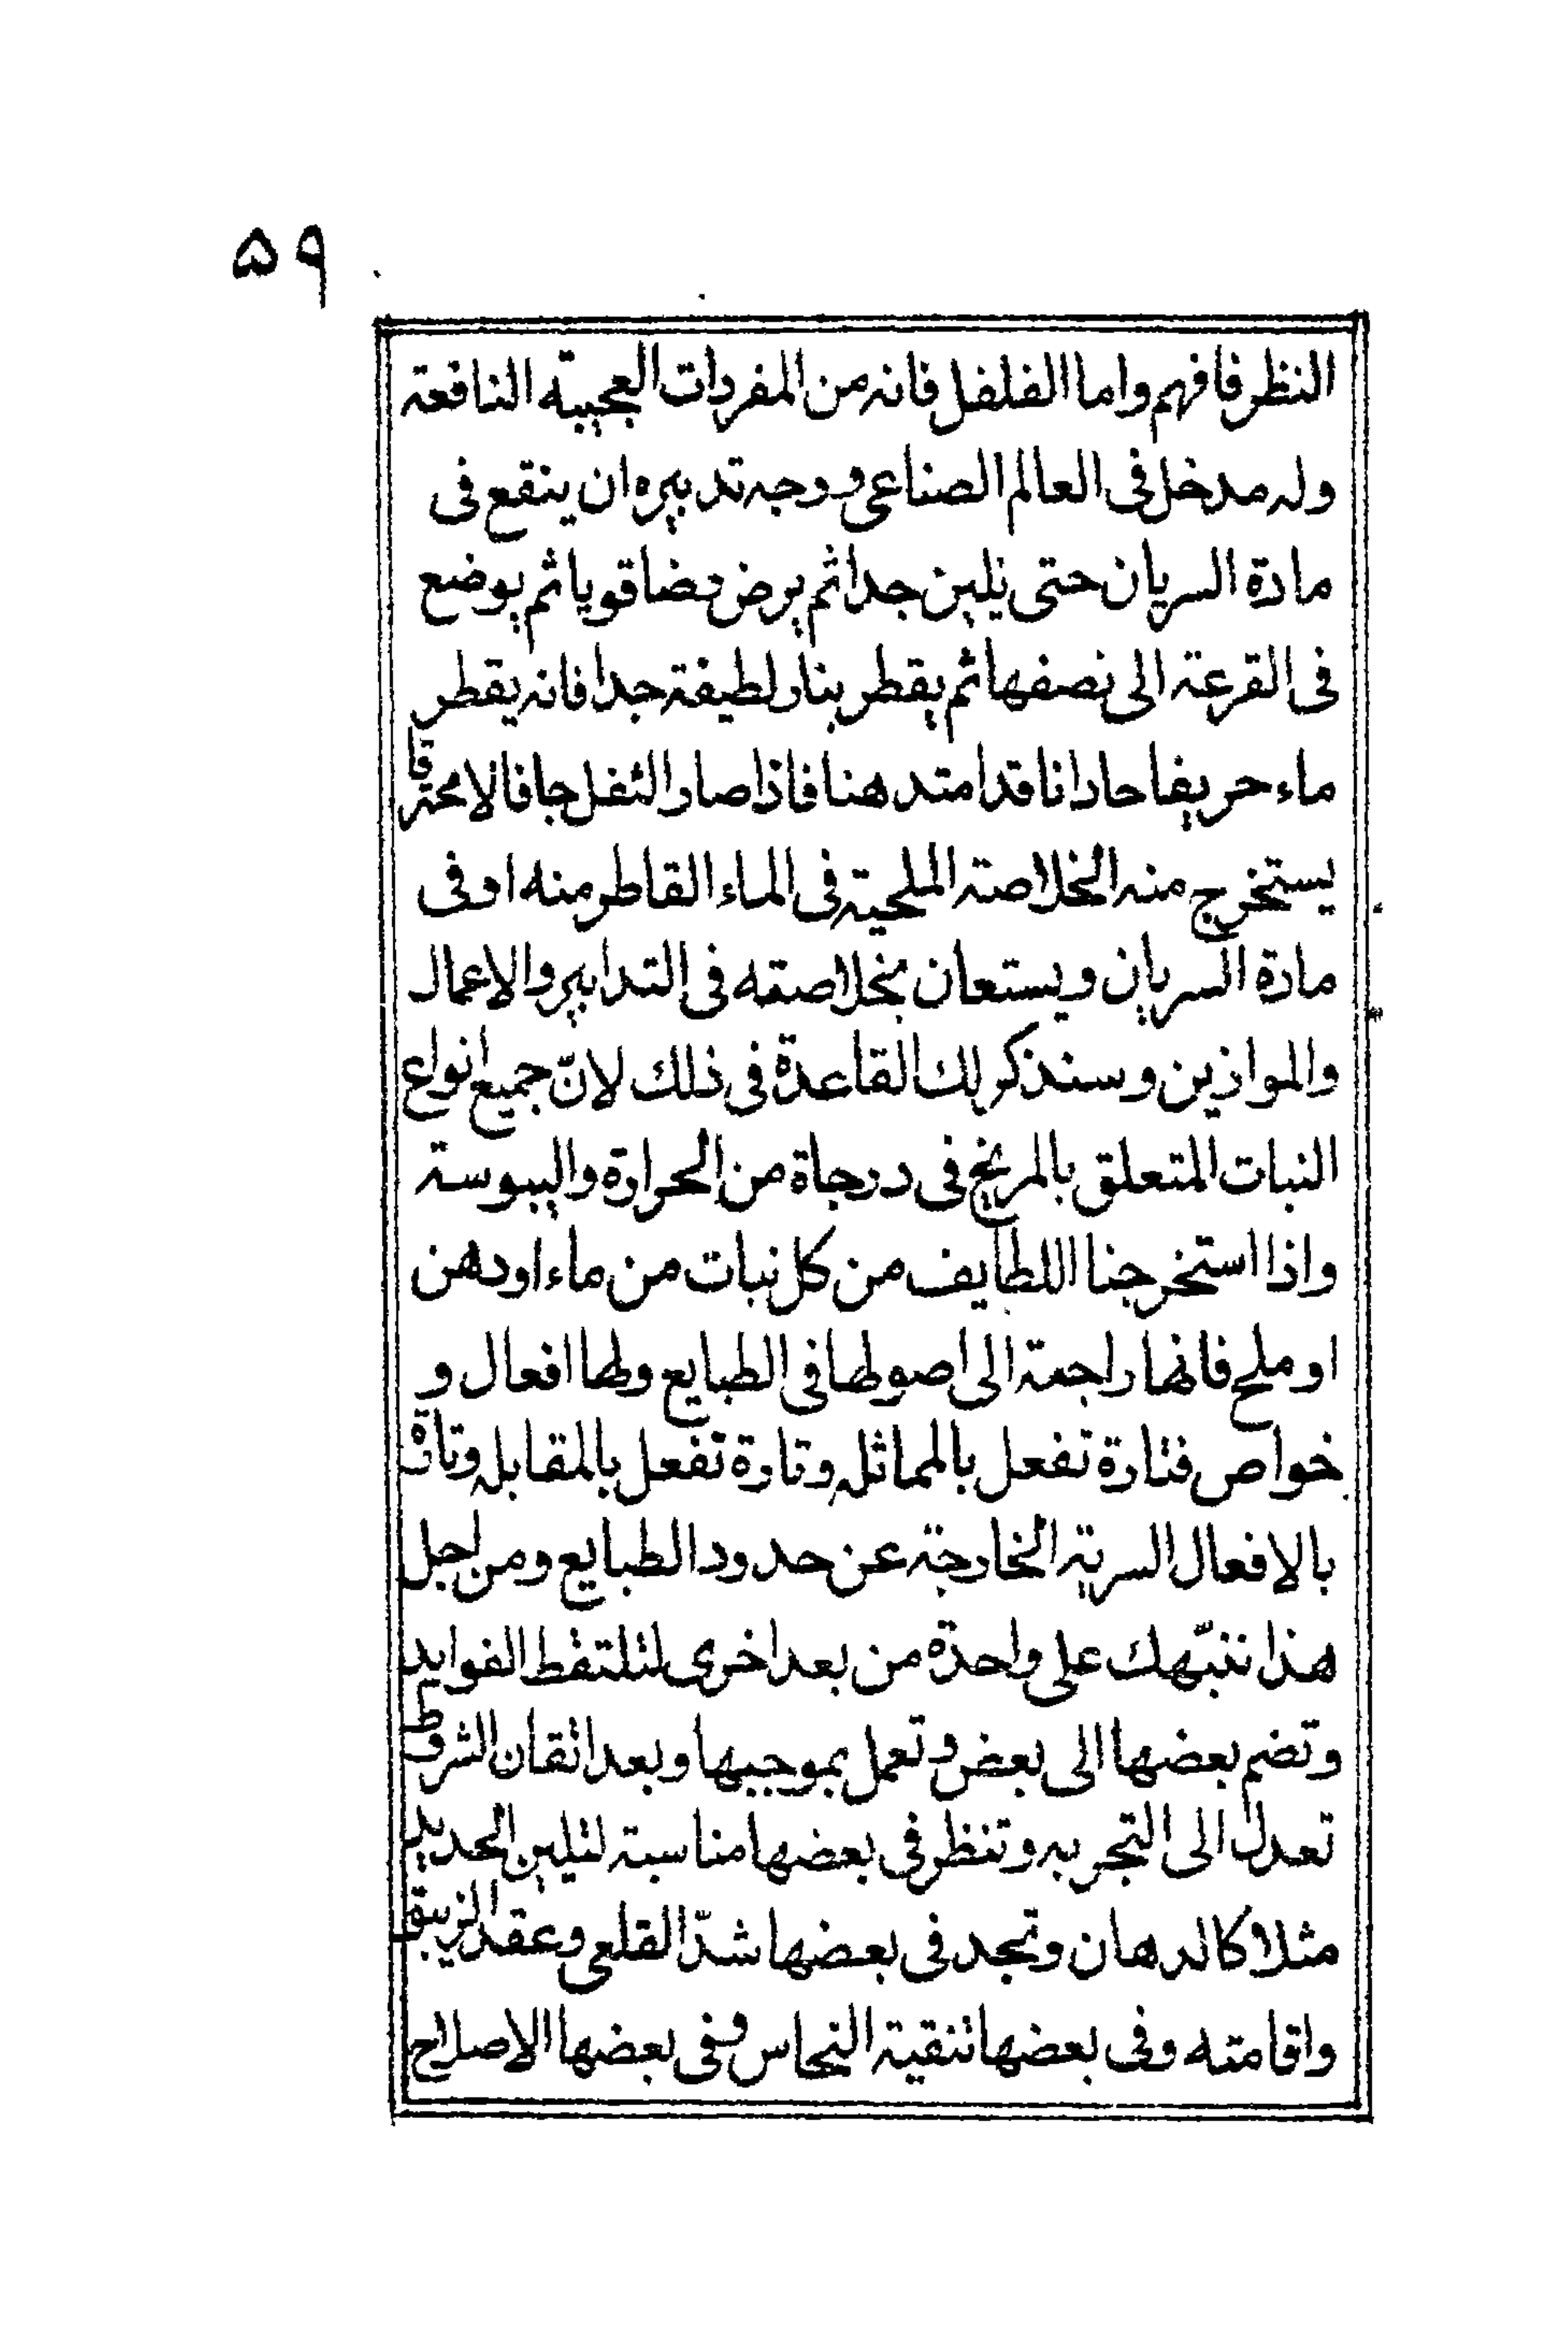 ۵۹
النظر فافهم واما الفلفل فانه من المفردات العجيبة النافعة
وله مدخل فى العالم الصناعى ووجه تدبيره ان ينقع فى
مادة السريان حتى يلين جدا ثم يرض رضا قويا ثم يوضع
فى القرعة الى نصفها ثم يقطر بنار لطيفة جدا فانه يقطر
ماء حريفا حادا نا قد امتد هنا فاذا صار الثفل جافا لا محترقا
يستخرج منه الخلاصة الملحية فى الماء القاطر منه او فى
مادة السريان ويستعان بخلاصته فى التدابير والاعمال
والموازين وسنذكر لك القاعدة فى ذلك لانّ جميع انواع
النبات المتعلق بالمريخ فى درجاة من الحرارة واليبوسة
واذا استخرجنا اللطايف من كل نبات من ماء او دهن
او ملح فانها راجعة الى اصولها فى الطبايع ولها افعال و
خواص فتارة تفعل بالمماثله وتارة تفعل بالمقابله وتارة
بالافعال السرية الخارجة عن حدود الطبايع ومن اجل
هذا ننبّهك على واحدة من بعد اخرى لتلتقط الفوايد
وتضم بعضها الى بعض وتعمل بموجبها وبعد اتقان الشروط
تعدل الى التجربه وتنظر فى بعضها مناسبة لتليين الحديد
مثلا كالدهان وتجد فى بعضها شدّ القلعى وعقد الزيبق
واقامته وفى بعضها تنقية النحاس وفى بعضها الاصلاح